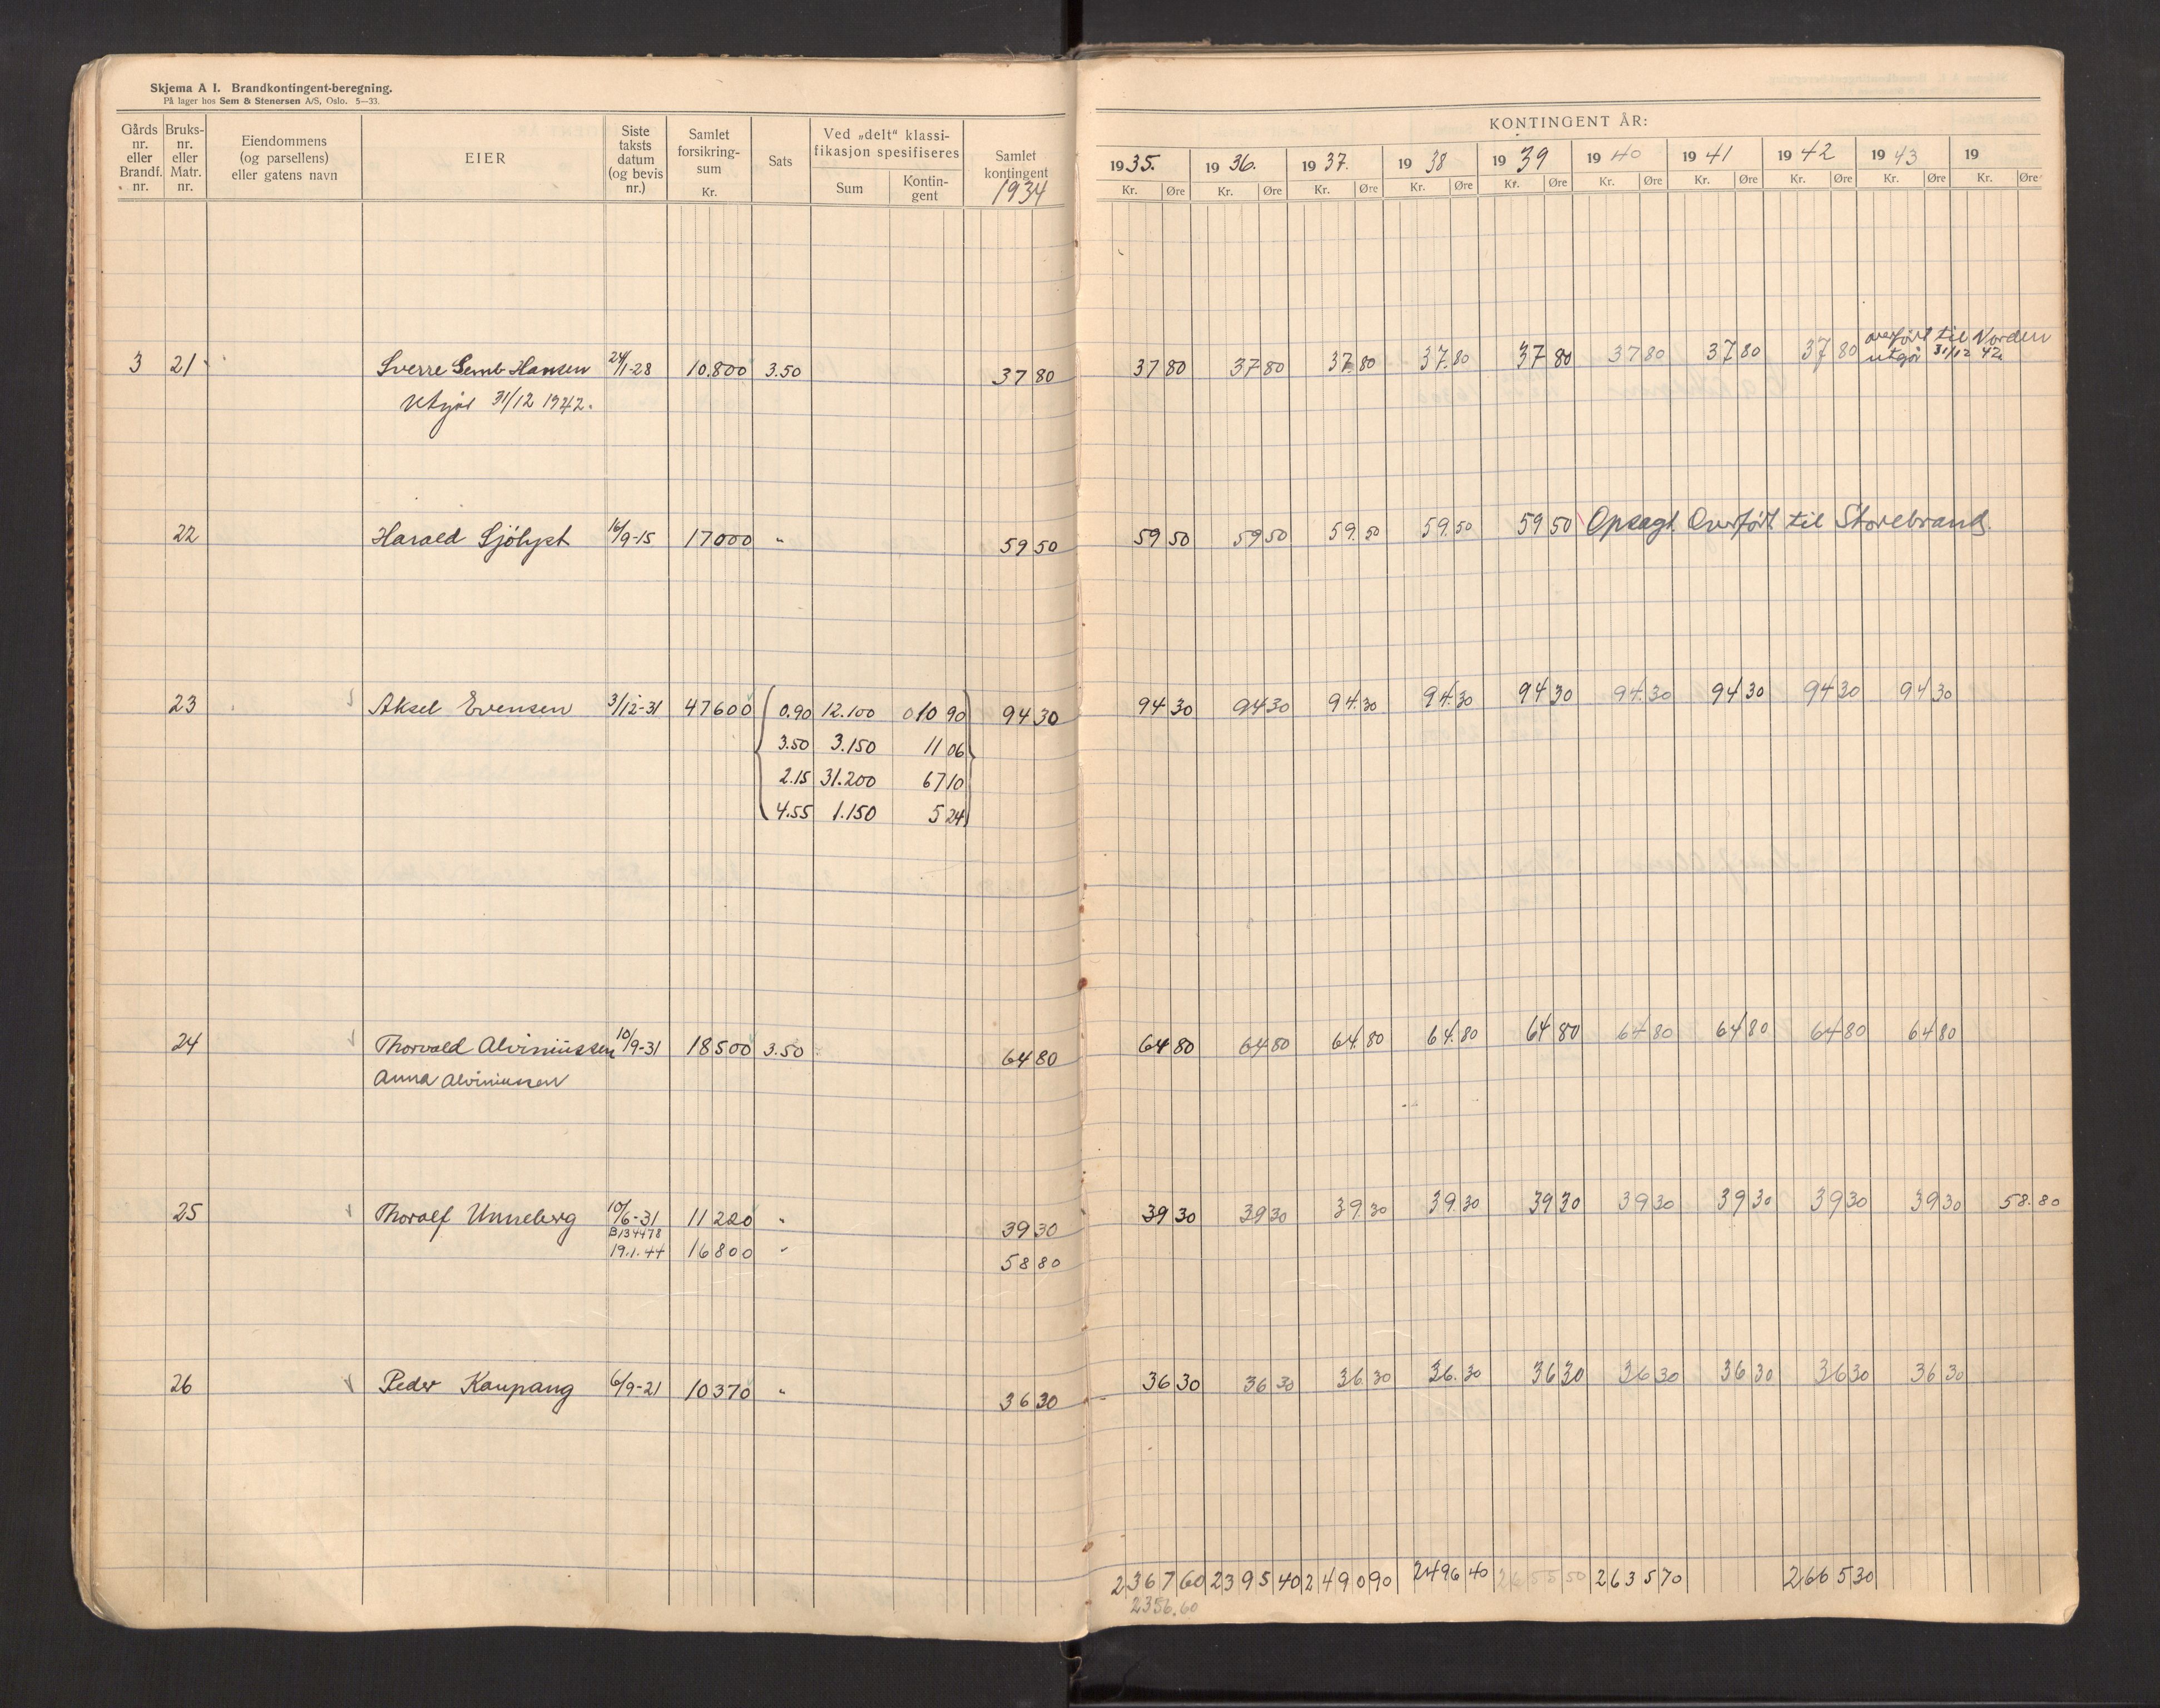 Skjema A I. Brandkontingent-beregning.
På lager hos Sem & Stenersen A/S, Oslo. 5—33.
Gårds nr. eller Brandf. nr.
Bruks- nr. eller Matr. nr.
Eiendommens (og parsellens) eller gatens navn
EIER
Siste taksts datum (og bevis nr.)
Samlet forsikring- sum Kr.
Sats
Ved „delt“ klassi- fikasjon spesifiseres
Sum
Kontin- gent
Samlet kontingent 1934
KONTINGENT ÅR:
1935. 1936. 1937. 1938 1939 1940 1941 1942 1943 19
Kr. Øre Kr. Øre Kr. Øre Kr. Øre Kr. Øre Kr. Øre Kr. Øre Kr. Øre Kr. Øre Kr. Øre
3 21 Sverre Semb-Hansen 24/1-28 10.800 3.50 37 80 37 80 37 80 37.80 37.80 37 80 37 80 37 80 37 80 overført til Norden
utgår 31/12 42.
Utgår 31/12 1942.
22 Harald Sjölyst 16/9-15 17000 " 59 50 59 50 59 50 59.50 59.50 59 50 Opsagt. Overført til Storebrand.
23 Aksel Evensen 3/12-31 47600 0.90 12.100 010 90 94 30 94 30 94 30 94.30 94.30 94 30 94.30 94 30 94 30 94 30
3.50 3.150 11 06
2.15 31.200 67 10
4.55 1.150 5 24
24 Thorvald Alviniussen 10/9-31 18500 3.50 64 80 64 80 64 80 64.80 64.80 64 80 64 80 64 80 64 80 64 80
Anna Alviniussen
25 Thoralf Unneberg 10/6-31 11220 " 39 30 39 30 39 30 39 30 39.30 39 30 39 30 39 30 39 30 39 30 58.80
B134478
19.1.44 16800 " 58 80
26 Peder Kaupang 6/9-21 10370 " 36 30 36 30 36 30 36 30 36.30 36 30 36 30 36 30 36 30 36 30
2367 60 2395 40 2490 90 2496 40 2655 50 2635 70 2665 30
2356.60